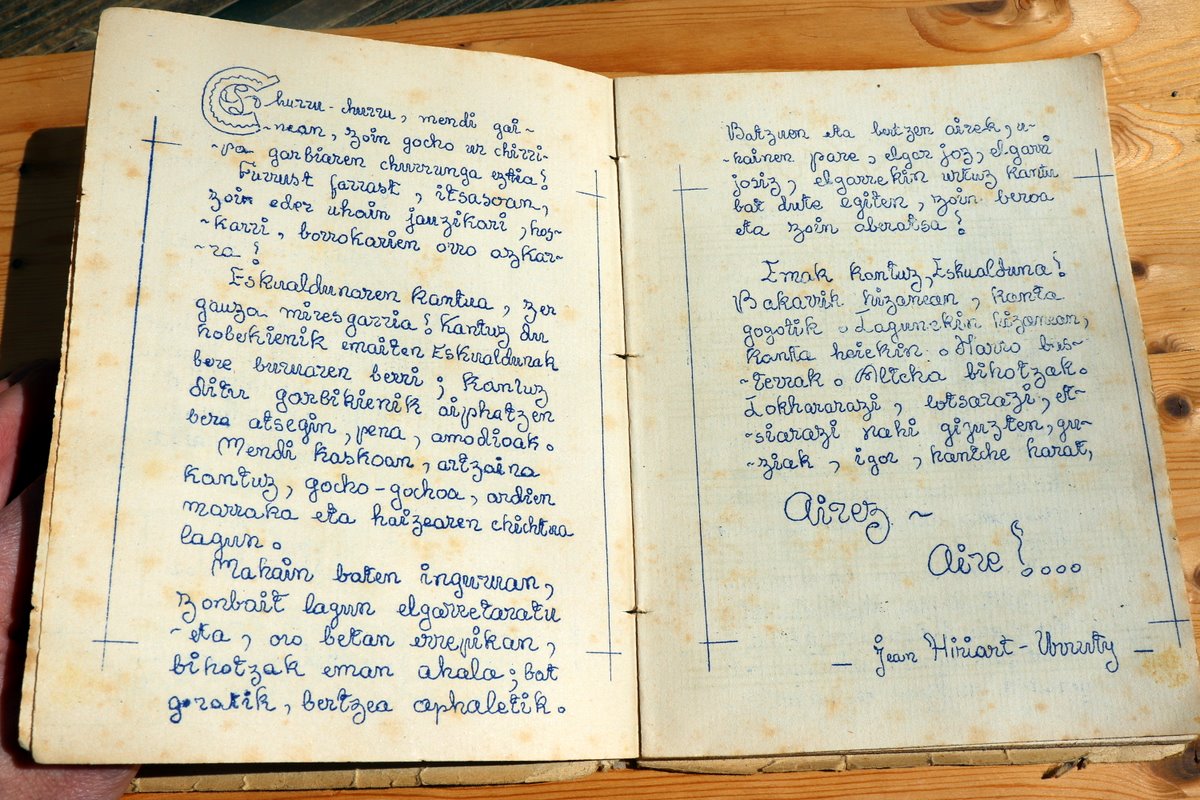 Churru-churru, mendi gai-
-nean, zoin gocho ur chirri-
-pa garbiaren churrunga eztia!
Furrust farrast, itsasoan,
zoin eder uhain jauzikari, hos-
-karri, borrokarien orro azkar-
-ra!
Eskualdunaren kantua, zer
gauza miresgarria! Kantuz du
hobekienik emaiten Eskualdunak
bere buruaren berri; kantuz
ditu garbikienik aiphatzen
bere atsegin, pena, amodioak.
Mendi kaskoan, artzaina
kantuz, gocho-gochoa, ardien
marraka eta haizearen chichtua
lagun.
Mahain baten inguruan,
zonbait lagun elgarretaratu
-eta, oro betan errepikan,
bihotzak eman ahala; bat
goratik, bertzea aphaletik.
Batzuen eta bertzen airek, u-
-kainen pare, elgar joz, elgarri
josiz, elgarrekin urtuz kantu
bat dute egiten, zoin beroa
eta zoin aberatsa!
Emak kantuz, Eskualduna!
Bakarrik hizanean, kanta
gogotik. Lagunekin hizanean,
kanta heiekin. Harro bus-
-terrak. Altcha bihotzak.
Lokhararazi, lotsarazi, et-
-siarazi nahi gizuzten, gu-
-ziak, igor, hantche harat,
Airez ~
Aire!....
- Jean Hiriart-Urruty -